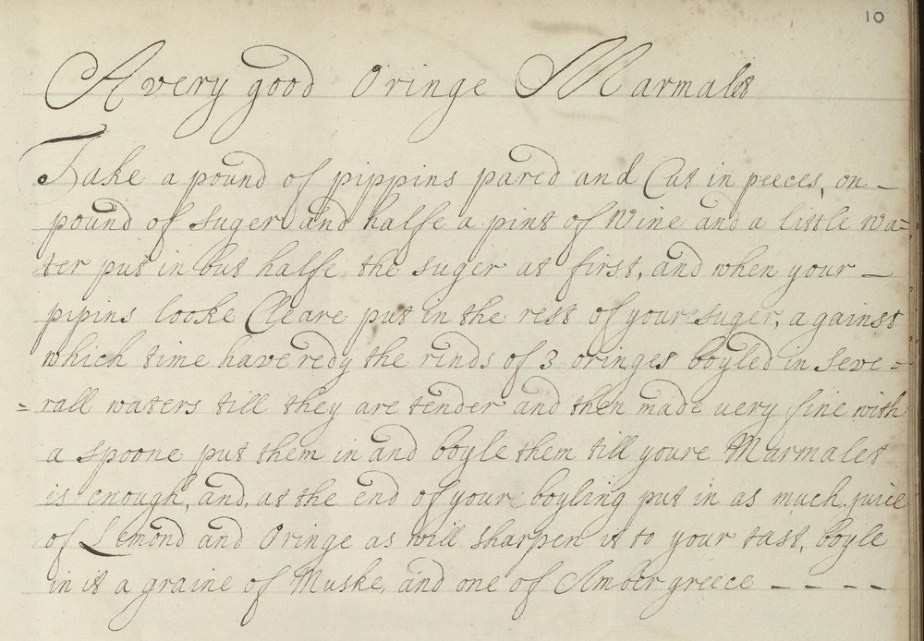 10
A very good Oringe Marmalet
Take a pound of pippins pared and Cut in peeces, on –
pound of suger and halfe a pint of Wine and a little wa=
ter put in but halfe the suger at first, and when your –
pipins looke Cleare put in the rest of your suger, against
which time have redy the rinds of 3 oringes boyled in seve=
=rall waters till they are tender and then made very fine with
a spoone put them in and boyle them till youre Marmalet
is enough, and, at the end of your boyling put in as much juice
of Lemond and Oringe as will sharpen it to your tast, boyle
in it a graine of Muske, and one of Ambergreece – – – –